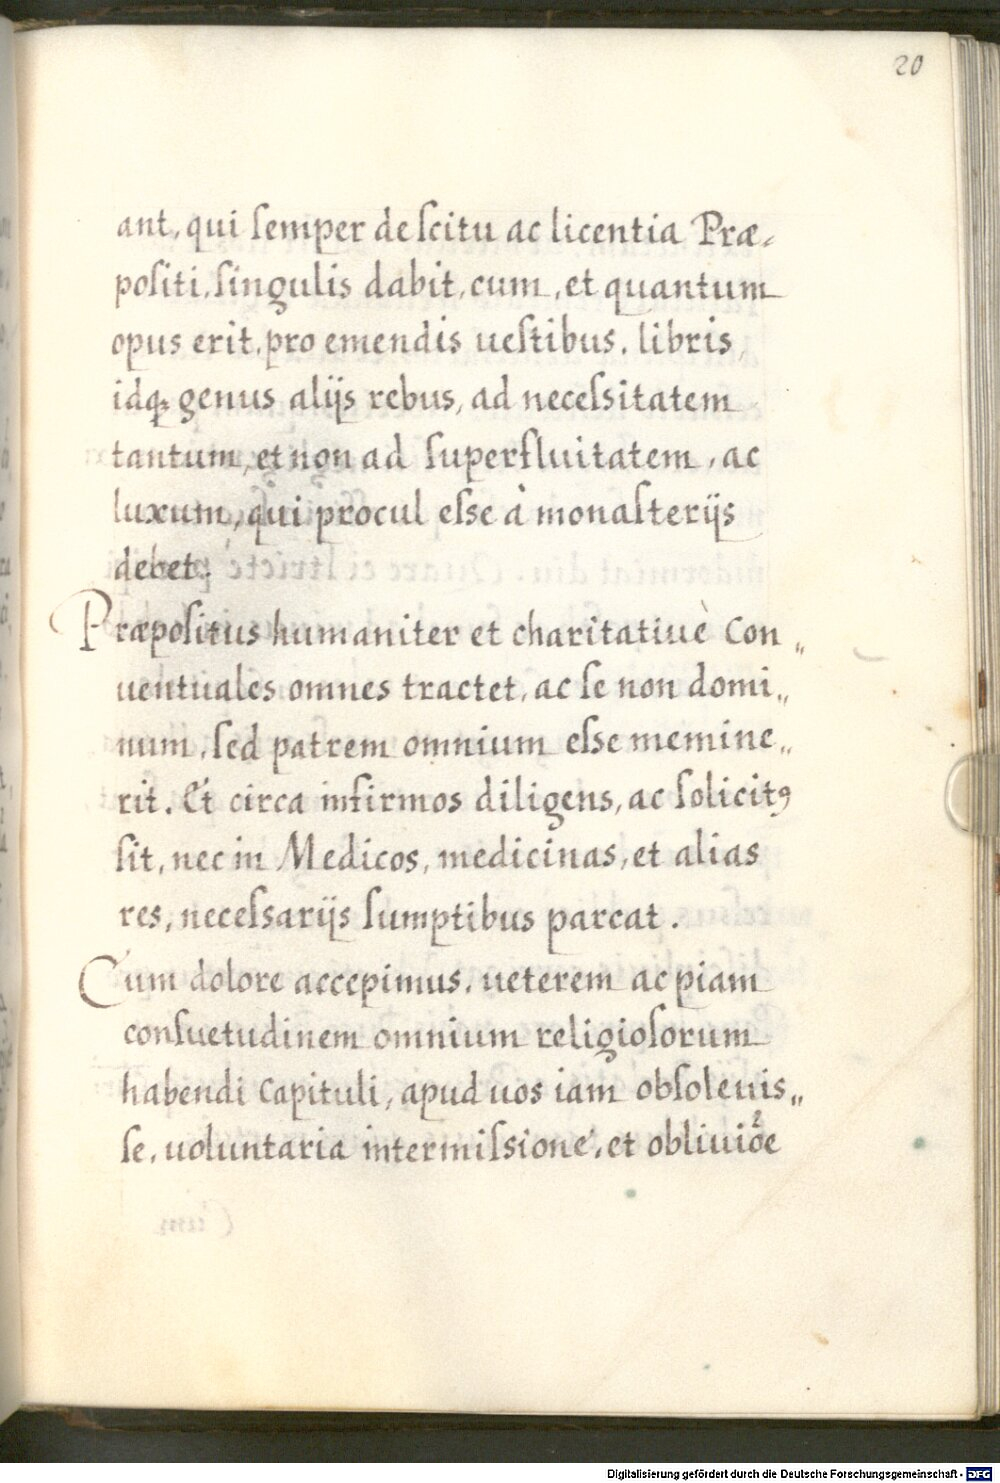 20
ant, qui semper de scitu ac licentia Præ-
positi, singulis dabit, cum, et quantum
opus erit, pro emendis uestibus, libris,
idq; genus alijs rebus, ad necessitatem
tantum, et non ad superfluitatem, ac
luxum, qui procul esse à monasterijs
debet.
Præpositus humaniter et charitatiuè Con„
uentuales omnes tractet, ac se non domi„
num, sed patrem omnium esse memine„
rit. Et circa infirmos diligens, ac solicitꝰ
sit, nec in Medicos, medicinas, et alias
res, necessarijs sumptibus parcat.
Cum dolore accepimus, ueterem ac piam
consuetudinem omnium religiosorum
habendi Capituli, apud uos iam obsoleuis„
se, uoluntaria intermissione, et obliuiõe
Digitalisierung gefördert durch die Deutsche Forschungsgemeinschaft - DFG